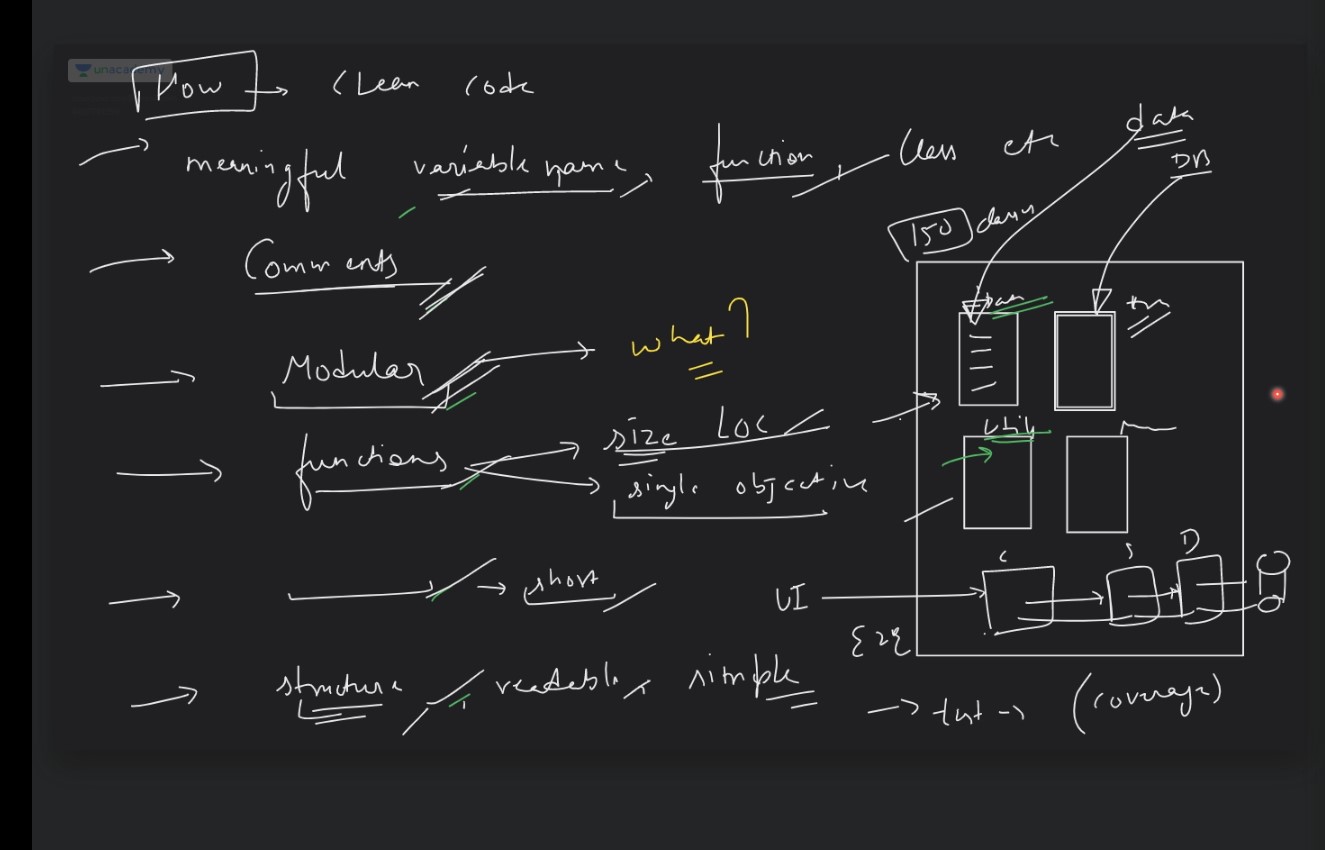 unacademy
How → Clean Code
→ meaningful variable name, function, class etc
→ Comments
→ Modular → what?
→ functions → size LOC
→ single objective
→ → short
→ structure, readable, simple
→ test → (coverage)
data
DB
150
Util
UI
C S D